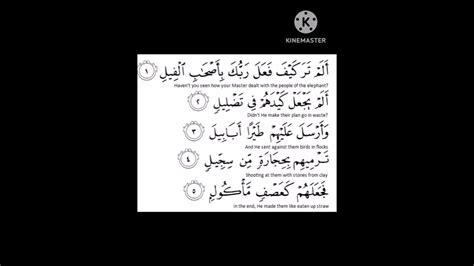 KINEMASTER
أَلَمْ تَرَ كَيْفَ فَعَلَ رَبُّكَ بِأَصْحَٰبِ ٱلْفِيلِ ١
Haven't you seen how your Master dealt with the people of the elephant?
أَلَمْ يَجْعَلْ كَيْدَهُمْ فِى تَضْلِيلٍ ٢
Didn't He make their plan go in waste?
وَأَرْسَلَ عَلَيْهِمْ طَيْرًا أَبَابِيلَ ٣
And He sent against them birds in flocks
تَرْمِيهِم بِحِجَارَةٍ مِّن سِجِّيلٍ ٤
Shooting at them with stones from clay
فَجَعَلَهُمْ كَعَصْفٍ مَّأْكُولٍۭ ٥
in the end, He made them like eaten up straw